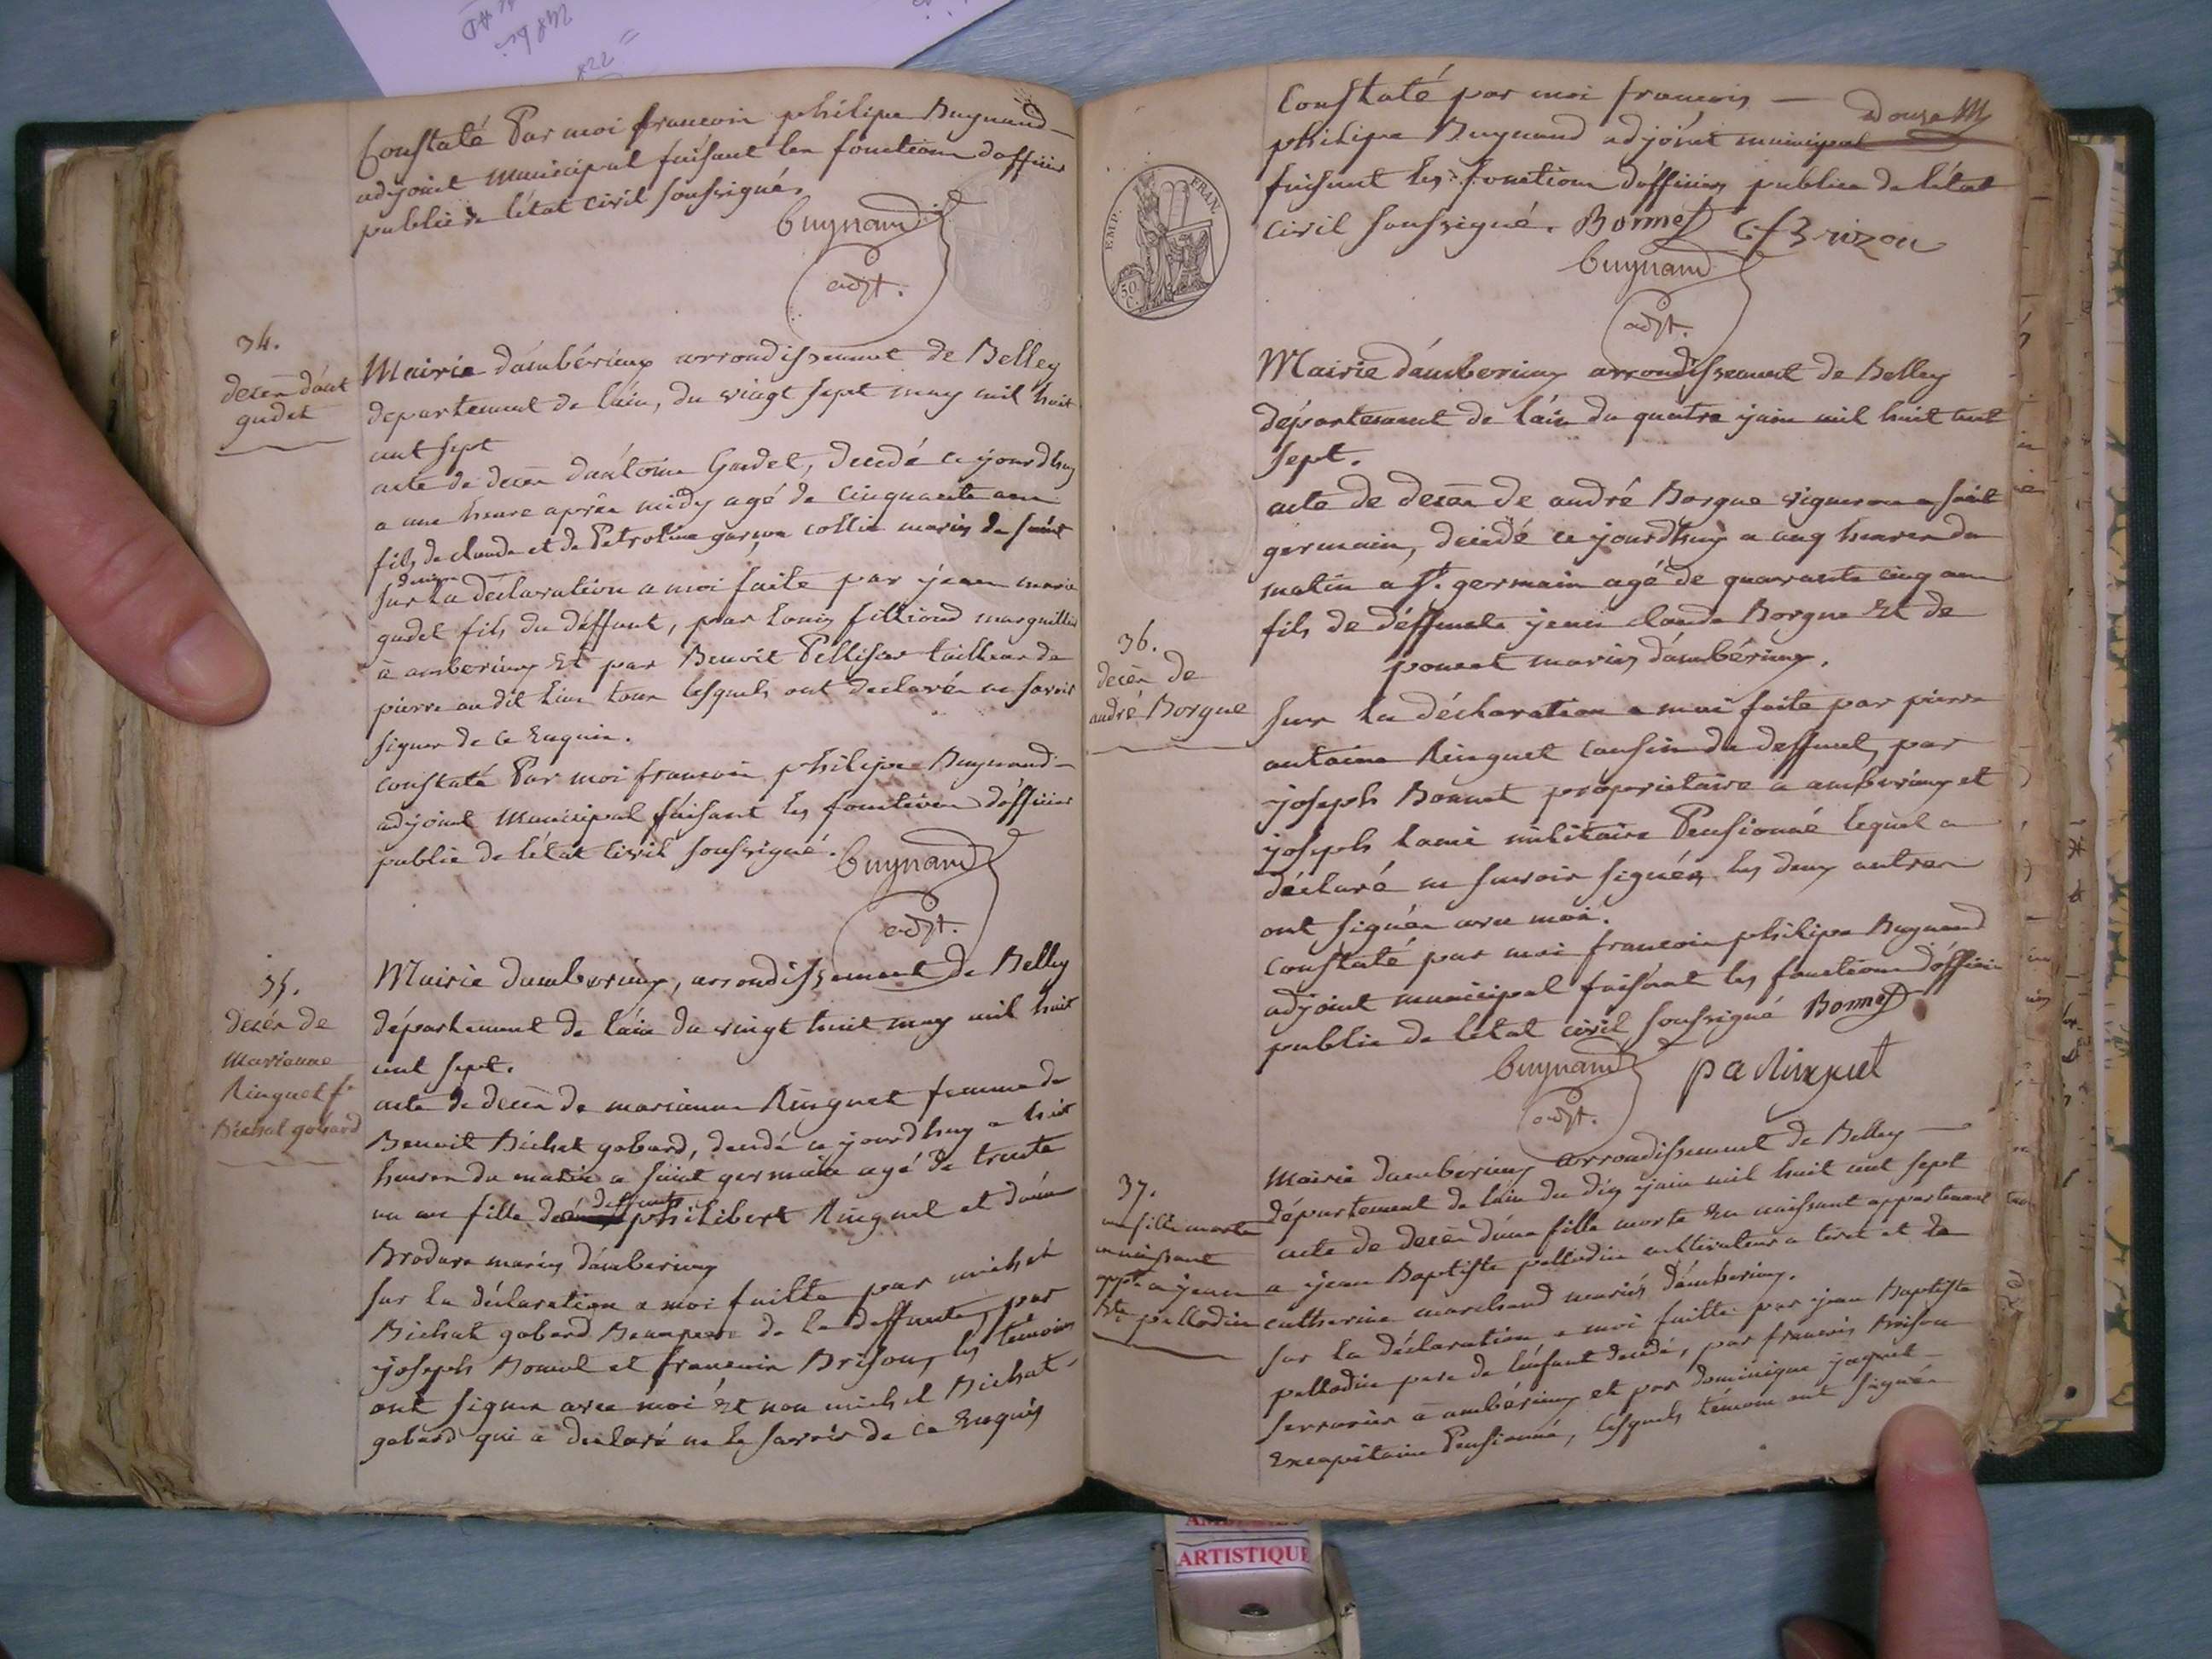 Constaté Par moi francoin philipe Buynand
adjoint municipal faisant les fonctions dofficier
public de létat civil soussigné.
buynand
adjt.
34.
decèn dánt
gudet
Mairie dámbérieux arrondissement de Belley
departement de láin, du vingt sept may mil huit
cent sept
acte de decèn dántoine Gudet, decedé ce jourdhuy
a une heure après midy agé de cinquante ans
fils de claude et de Petroline collin mariés de saint
sur la déclaration a moi faite par jean marie
gudet fils du déffunt, par Louis fillioud marguillier
à amberieux Et par Benoit Pellisse tailleur de
pierre au dit lieu tous lesquels ont declarés ne savoir
signer de ce Enquis.
constaté Par moi francoin philipe Buynand
adjoint Municipal faisant les fonctions dófficier
public de létat civil soussigné.
buynand
adjt.
35.
decén de
marianne
Ringuet fe
Bichat gobard
Mairie damberieux, arrondissement de Belley
département de láin du vingt huit may mil huit
cent sept.
acte de decèn de marianne Ringuet femme de
Benoit Bichat gobard, decedé ce jourdhuy a huit
heures du matin a saint germain agé de trente
un ans fille de deffunt philibert Ringuet et dánne
Brodare mariés dámberieux
sur la déclaration a moi faitte par michel
Bichat gobard Beaupere de la deffunte, par
joseph Bonnet et francoin Brison, les témoins
ont signer avec moi Et non michel Bichat
gobard qui a declaré ne le savoir de ce Enquis
Douze
Constaté par moi francois
philipe Buynand adjoint municipal
faisant les fonctions dófficier public de létat
civil soussigné. Bonnet C f Brizon
buynand
adjt.
EMP. FRAN.
50
C.
Mairie dámberieux arrondissement de Belley
département de láin du quatre juin mil huit cent
sept.
36.
decèn de
andré Borgue
acte de decèn de andré Borgue vigneron a saint
germain, decedé ce jourdhuy a cinq heures du
matin a St. germain agé de quarante cinq ans
fils de déffunts jean claude Borgue Et de
poncet mariés dámbérieux.
sur la déclaration a moi faite par pierre
antoine Ringuet cousin du deffunt, par
joseph Bonnet proprietaire a amberieux et
joseph Lami militaire Pensionné lequel a
déclaré ne savoir signer, les deux autres
ont signés avec moi.
Constaté par moi francoin philipe Buynand
adjoint municipal faisant les fonctions dófficier
public de létat civil soussigné Bonnet
buynand
adjt.
p a Ringuet
37.
une fille morte
en naissant
appt. a jean
Bte pallodin
Mairie damberieux arrondissement de Belley
département de láin du dix juin mil huit cent sept
acte de decèn dúne fille morte En naissant appartenant
a jean Baptiste pallodin cultivateur a tiret et de
catherine marchand mariés dámberieux.
sur la déclaration a moi faitte par jean Baptiste
pallodin pere de lénfant decedé, par francois Brison
serrurier a ambérieux et par dominique jaquet
Excapitaine Pensionné, lesquels témoins ont signés
ARTISTIQUE